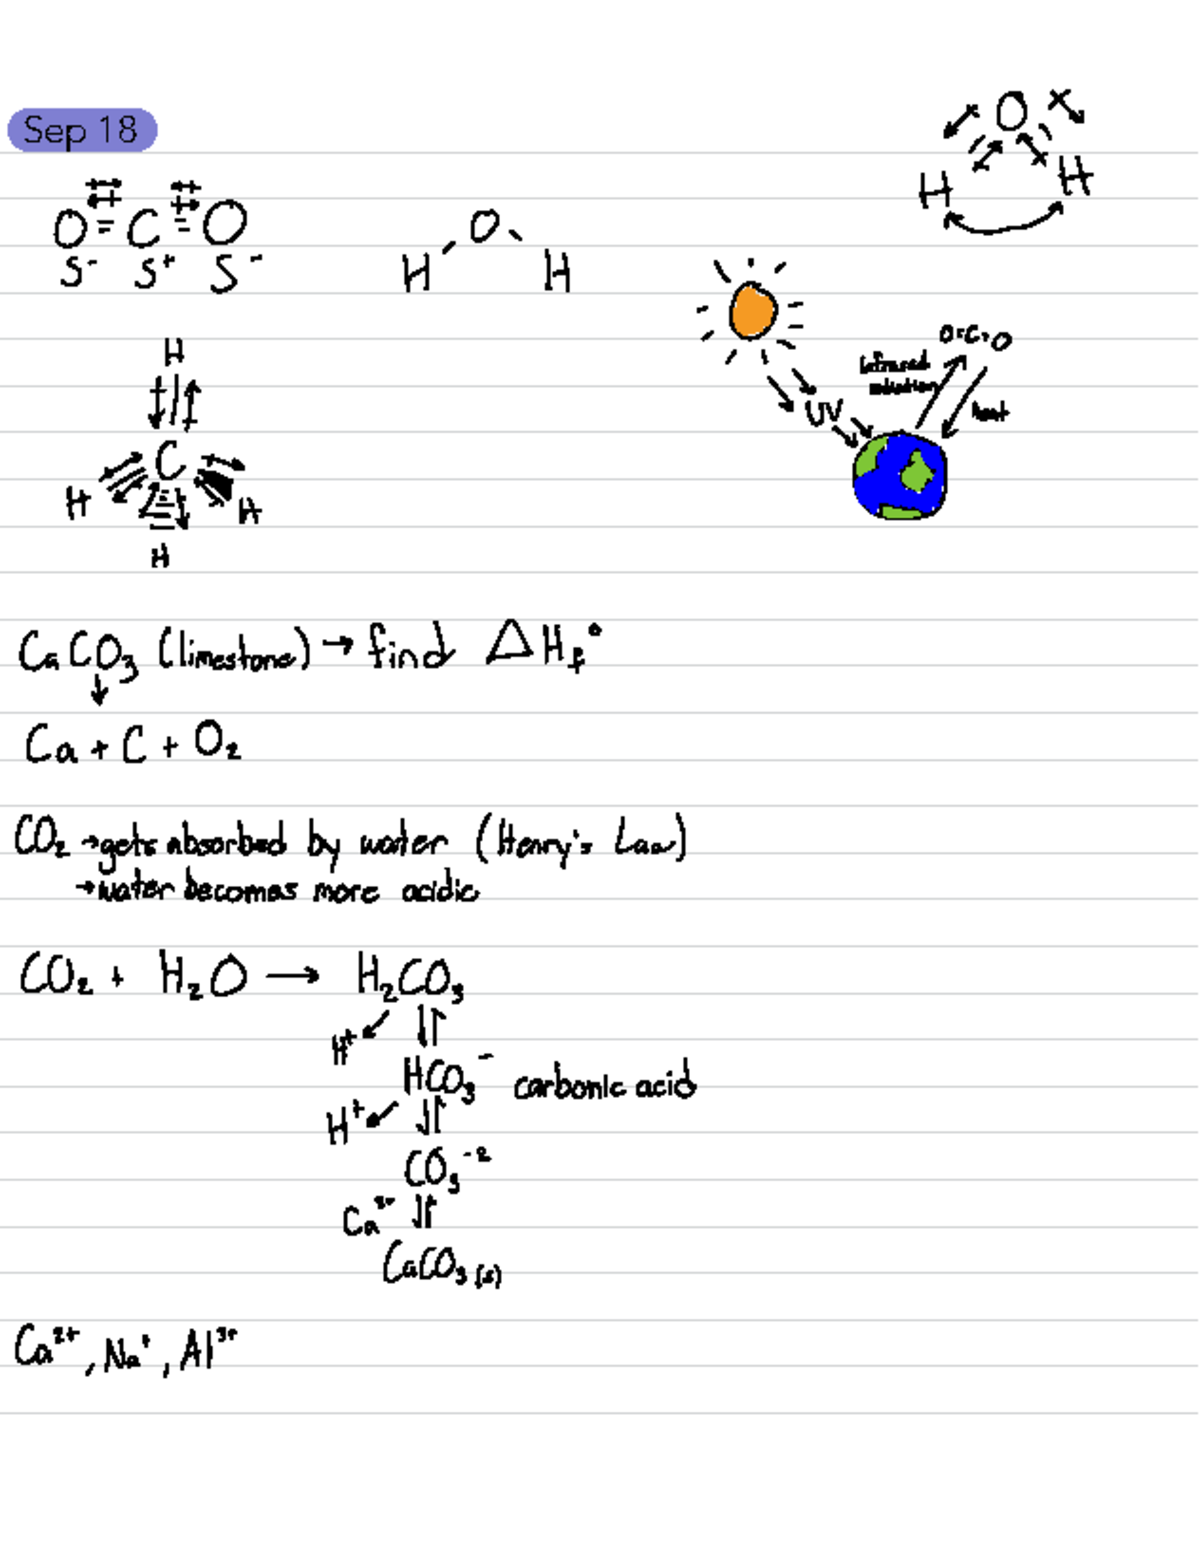 Sep 18
O=C=O
S⁻ S⁺ S⁻
O
H H
O
H H
H
C
H H
H
UV
Infrared
radiation
O=C=O
heat
CaCO₃ (limestone) → find ΔH_f°
↓
Ca + C + O₂
CO₂ → gets absorbed by water (Henry's Law)
→ water becomes more acidic
CO₂ + H₂O → H₂CO₃
H⁺ ↙ ⇌
HCO₃⁻ carbonic acid
H⁺ ↙ ⇌
CO₃⁻²
Ca²⁺ ⇌
CaCO₃ (s)
Ca²⁺, Na⁺, Al³⁺